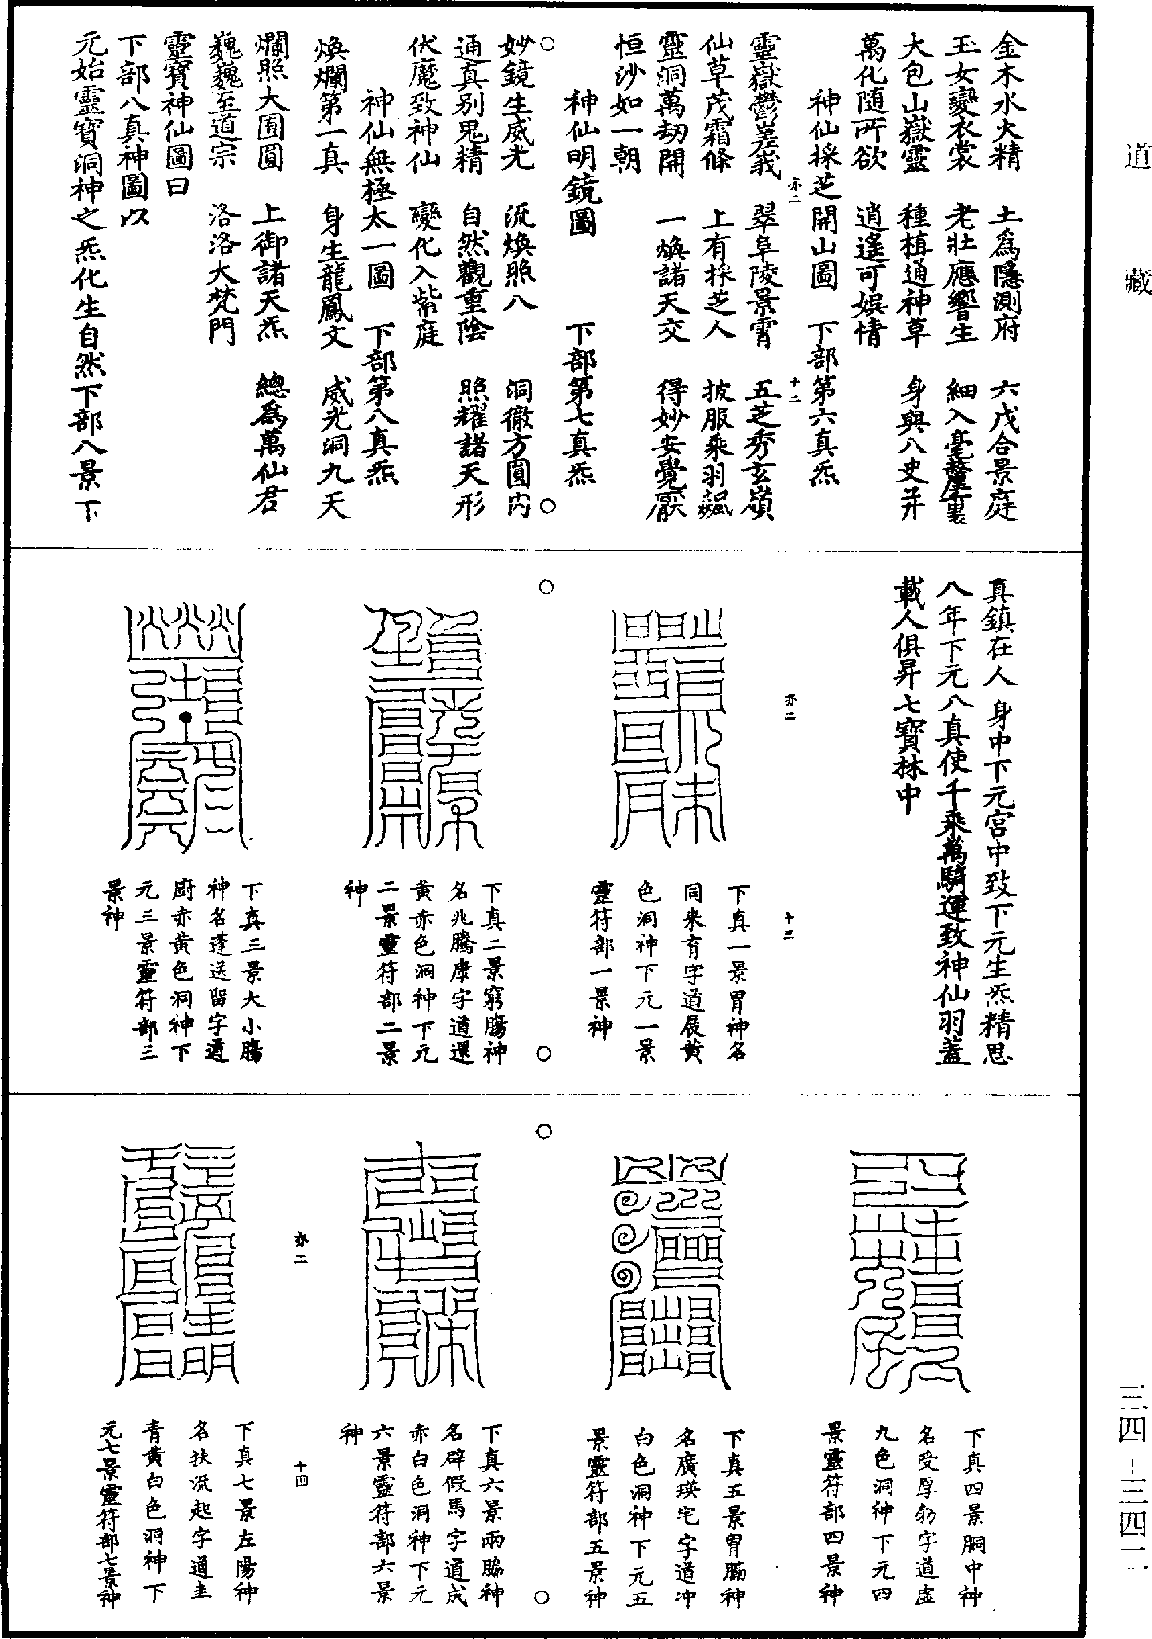 道藏
金木水火精　土為隱測府　六戊合景庭
玉女變衣裳　老壯應響生　細入毫釐裏
大包山嶽靈　種植通神草　身與八史并
萬化隨所欲　逍遙可娛情
神仙採芝開山圖　下部第六真炁
靈嶽鬱嵳峩　翠阜陵景霄　五芝秀玄嶺
仙草茂霜條　上有採芝人　披服乘羽飆
靈洞萬劫開　一煥諸天交　得妙安覺厭
恒沙如一朝
神仙明鏡圖　下部第七真炁
妙鏡生威光　流煥照八　洞徹方圓内
通真別鬼精　自然觀重陰　照耀諸天形
伏魔致神仙　變化入紫庭
神仙無極太一圖　下部第八真炁
煥爛第一真　身生龍鳳文　威光洞九天
爛照大圓　上御諸天炁　總為萬仙君
巍巍至道宗　洛洛大梵門
靈寶神仙圖曰
下部八真神圖以
元始靈寶洞神之炁化生自然下部八景下
亦二
十二
真鎮在人身中下元宮中致下元生炁精思
八年下元八真使千乘萬騎運致神仙羽蓋
載人俱昇七寶林中
亦二
十三
下真一景胃神名
同來育字道展黄
色洞神下元一景
靈符部一景神
下真二景窮腸神
名兆騰康字道還
黄赤色洞神下元
二景靈符部二景
神
下真三景大小腸
神名蓬送留字道
廚赤黄色洞神下
元三景靈符部三
景神
下真四景胴中神
名受厚勃字道虛
九色洞神下元四
景靈符部四景神
下真五景胃膈神
名廣瑛宅字道冲
白色洞神下元五
景靈符部五景神
下真六景兩脇神
名辟假馬字道成
赤白色洞神下元
六景靈符部六景
神
亦二
十四
下真七景左陽神
名扶流起字道圭
青黄白色洞神下
元七景靈符部七景神
三四-三四二